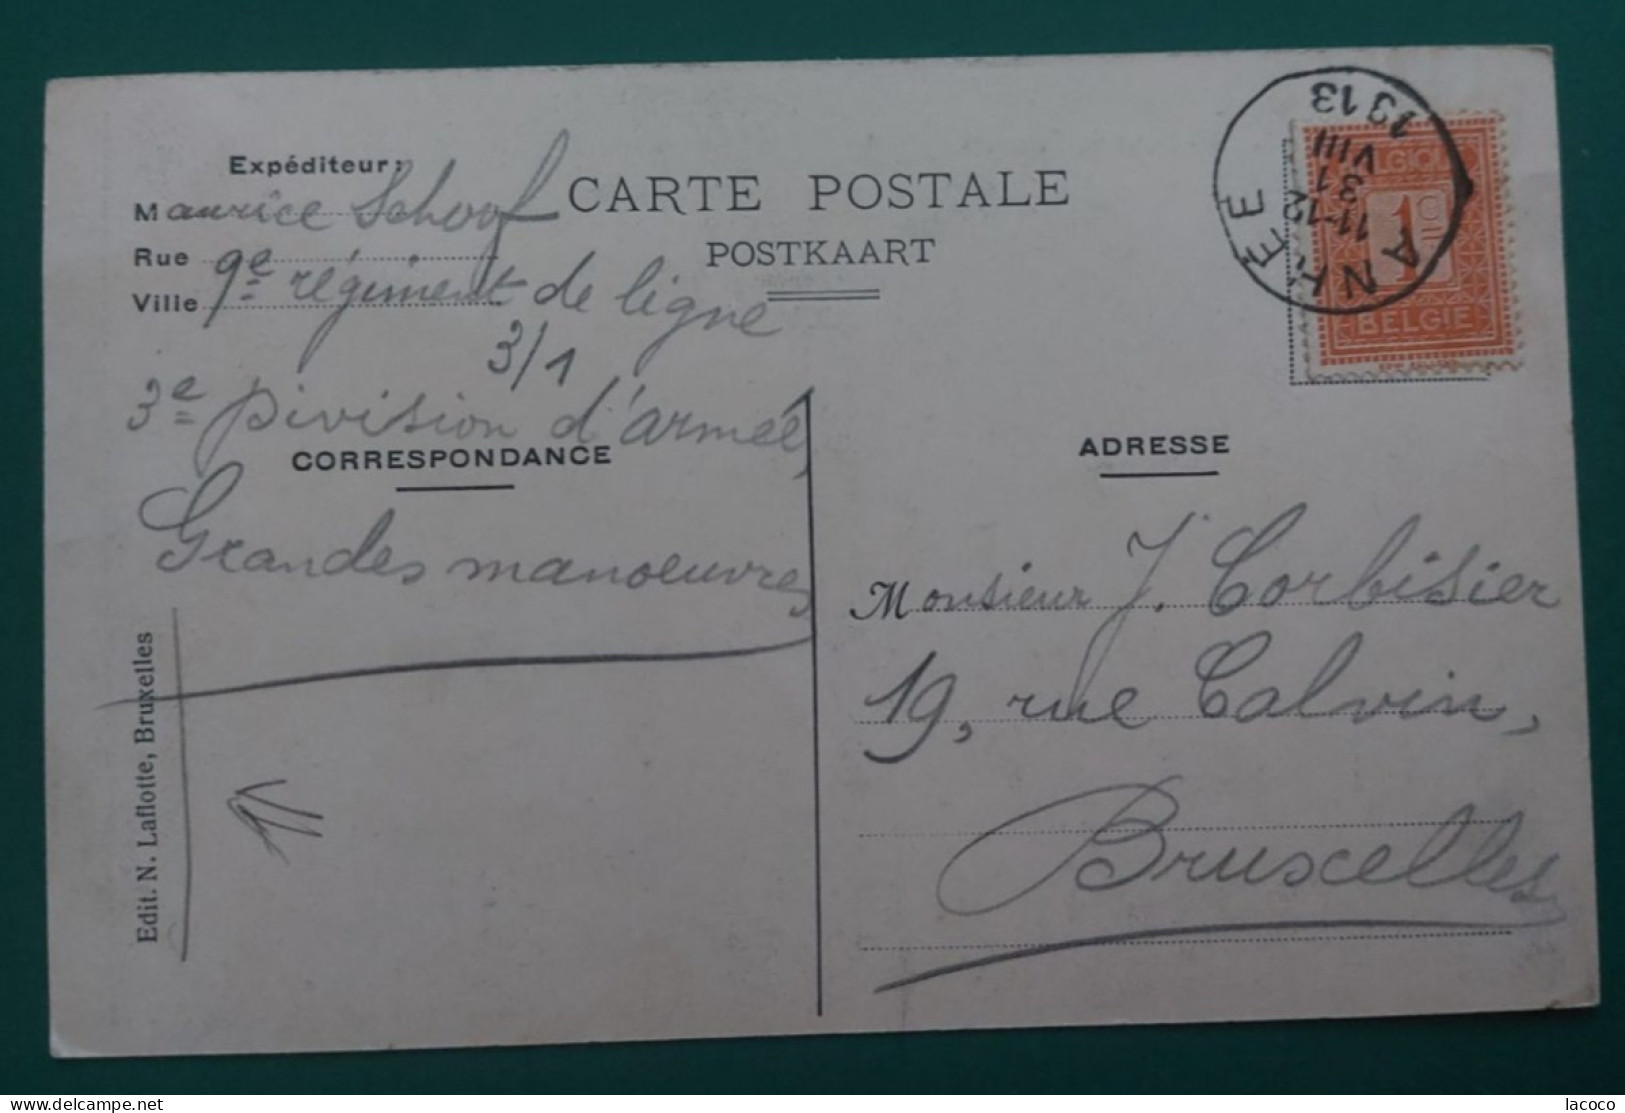 Expéditeur:
Maurice Schoof
Rue
Ville
9e régiment de ligne
3/1
3e Division d'armée,
CARTE POSTALE
POSTKAART
CORRESPONDANCE
Grandes manoeuvres
Edit. N. Laflotte, Bruxelles
ANHÉE
11-12
31
VIII
1913
BELGIQUE
1c
BELGIË
ADRESSE
Monsieur J. Corbisier
19, rue Calvin,
Bruxelles
lacoco